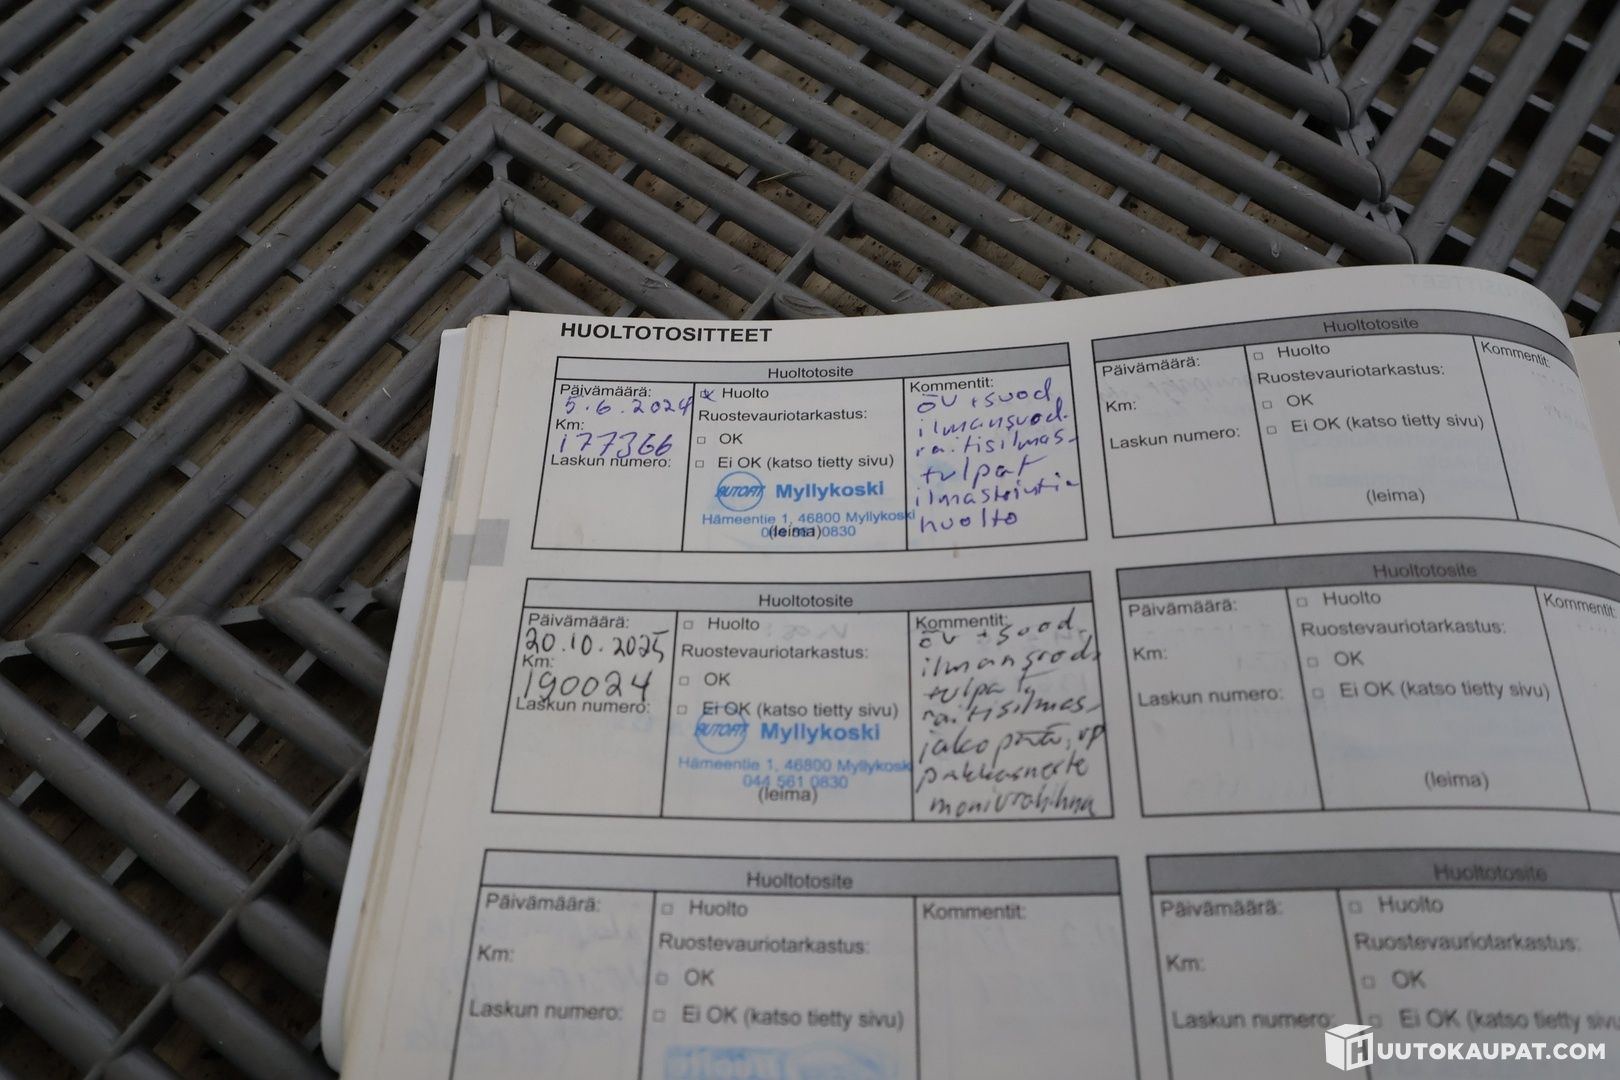 HUOLTOTOSITTEET
Huoltotosite
Päivämäärä:
5.6.2024
Km:
177366
Laskun numero:
Huolto
Ruostevauriotarkastus:
OK
Ei OK (katso tietty sivu)
AUTOFIT Myllykoski
Hämeentie 1, 46800 Myllykoski
0830
(leima)
Kommentit:
öv + suod
ilmansuod.
raitisilmas-
tulpat
ilmastointin
huolto
Huoltotosite
Päivämäärä:
Km:
Laskun numero:
Huolto
Ruostevauriotarkastus:
OK
Ei OK (katso tietty sivu)
(leima)
Kommentit:
Huoltotosite
Päivämäärä:
20.10.2025
Km:
190024
Laskun numero:
Huolto
Ruostevauriotarkastus:
OK
Ei OK (katso tietty sivu)
AUTOFIT Myllykoski
Hämeentie 1, 46800 Myllykoski
044 561 0830
(leima)
Kommentit:
öv + suod.
ilmansuod.
raitisilmas-
jakopää, vp
pakkasneste
Huoltotosite
Päivämäärä:
Km:
Laskun numero:
Huolto
Ruostevauriotarkastus:
OK
Ei OK (katso tietty sivu)
(leima)
Kommentit:
Huoltotosite
Päivämäärä:
Km:
Laskun numero:
Huolto
Ruostevauriotarkastus:
OK
Ei OK (katso tietty sivu)
Kommentit:
Huoltotosite
Päivämäärä:
Km:
Laskun numero:
Huolto
Ruostevauriotarkastus:
OK
Ei OK (katso tietty sivu)
HUUTOKAUPAT.COM